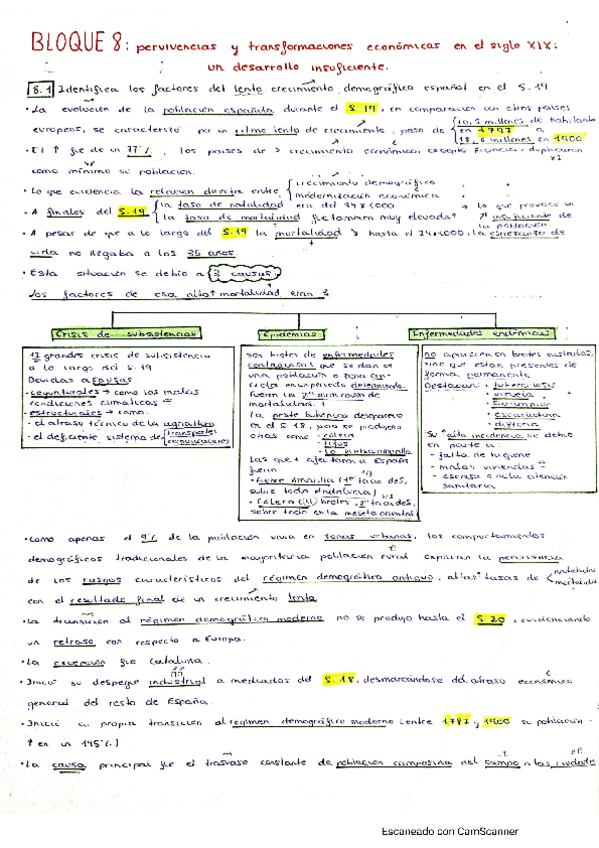 BLOQUE 8: pervivencias y transformaciones económicas en el siglo XIX:
un desarrollo insuficiente.
8.1 Identifica los factores del lento crecimiento demográfico español en el S.19
• La evolución de la población española durante el S.19, en comparación con otros países
europeos, se caracterizó por un ritmo lento de crecimiento, pasó de 10,5 millones de habitantes
en 1797 a
18,6 millones en 1900
• El ↑ fue de un 77%, los países de > crecimiento económico, excepto Francia, duplicaron
como mínimo su población. x2
• Lo que evidencia la relación directa entre crecimiento demográfico
modernización económica
• A finales del S.19 la tasa de natalidad era del 34x1000 → lo que provocó un
la tasa de mortalidad también muy elevada ↑ insuficiente de
la población
• A pesar de que a lo largo del S.19 la mortalidad ↘ hasta el 29x1000, la esperanza de
vida no llegaba a los 35 años.
• Esta situación se debió a 3 causas:
Los factores de esa alta mortalidad eran 3
Crisis de subsistencias
12 grandes crisis de subsistencia
a lo largo del S.19
Debidas a causas
- coyunturales → como las malas
condiciones climáticas
- estructurales → como:
• el atraso técnico de la agricultura
• el deficiente sistema de transportes
comunicaciones
Epidemias
son brotes de enfermedades
contagiosas que se dan en
una población o zona en
un periodo determinado.
fueron la 2ª
mortalidad ↑
La peste bubónica desapareció
en el S.18, pero se produjeron
otras como • cólera
• tifus
• la fiebre amarilla
Las que + afectaron a España
fueron:
• Fiebre Amarilla
sobre todo Andalucía)
• Cólera brotes
sobre todo en la meseta oriental
Enfermedades endémicas
no aparecían en brotes aislados,
sino que están presentes de
forma permanente
Destacan: • tuberculosis
• viruela
• sarampión
• escarlatina
• difteria
Su alta incidencia se debió
en parte a:
- falta de higiene
- malas viviendas
- escasa o nula atención
sanitaria
• Como apenas el 9% de la población vivía en zonas urbanas, los comportamientos
demográficos tradicionales de la mayoritaria población rural explican la pervivencia
de los rasgos característicos del régimen demográfico antiguo, altas tasas de natalidad
mortalidad
con el resultado final de un crecimiento lento
• La transición al régimen demográfico moderno no se produjo hasta el S.20, evidenciando
un retraso con respecto a Europa.
• La excepción fue Cataluña.
• Inició su despegue industrial a mediados del S.18, desmarcándose del atraso económico
general del resto de España.
• Inició su propia transición al régimen demográfico moderno (entre 1787 y 1900 su población
↑ en un 145%)
• La causa principal fue el trasvase constante de población campesina del campo a las ciudades
Escaneado con CamScanner